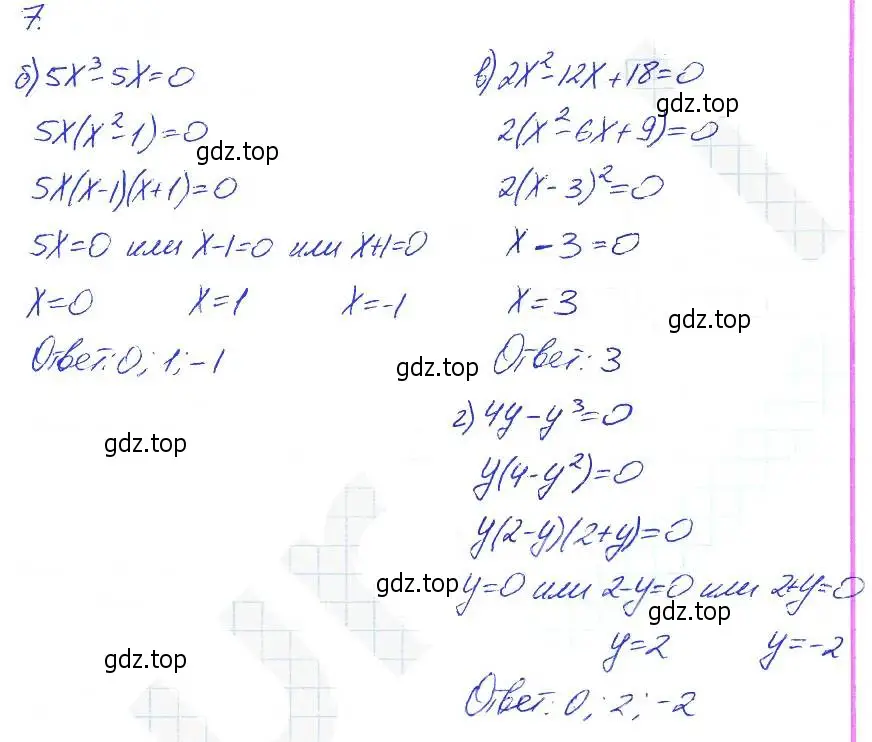 7.
б) 5x³ - 5x = 0
5x(x² - 1) = 0
gdz.top
5x(x-1)(x+1) = 0
5x = 0 или x-1 = 0 или x+1 = 0
x = 0 x = 1 x = -1
Ответ: 0; 1; -1
gdz.top
gdz.top
gdz.top
в) 2x² - 12x + 18 = 0
gdz.top
2(x² - 6x + 9) = 0
2(x - 3)² = 0
x - 3 = 0
x = 3
gdz.top
Ответ: 3
г) 4y - y³ = 0
y(4 - y²) = 0
y(2 - y)(2 + y) = 0
gdz.top
y = 0 или 2-y = 0 или 2+y = 0
gdz.top
y = 2 y = -2
Ответ: 0; 2; -2